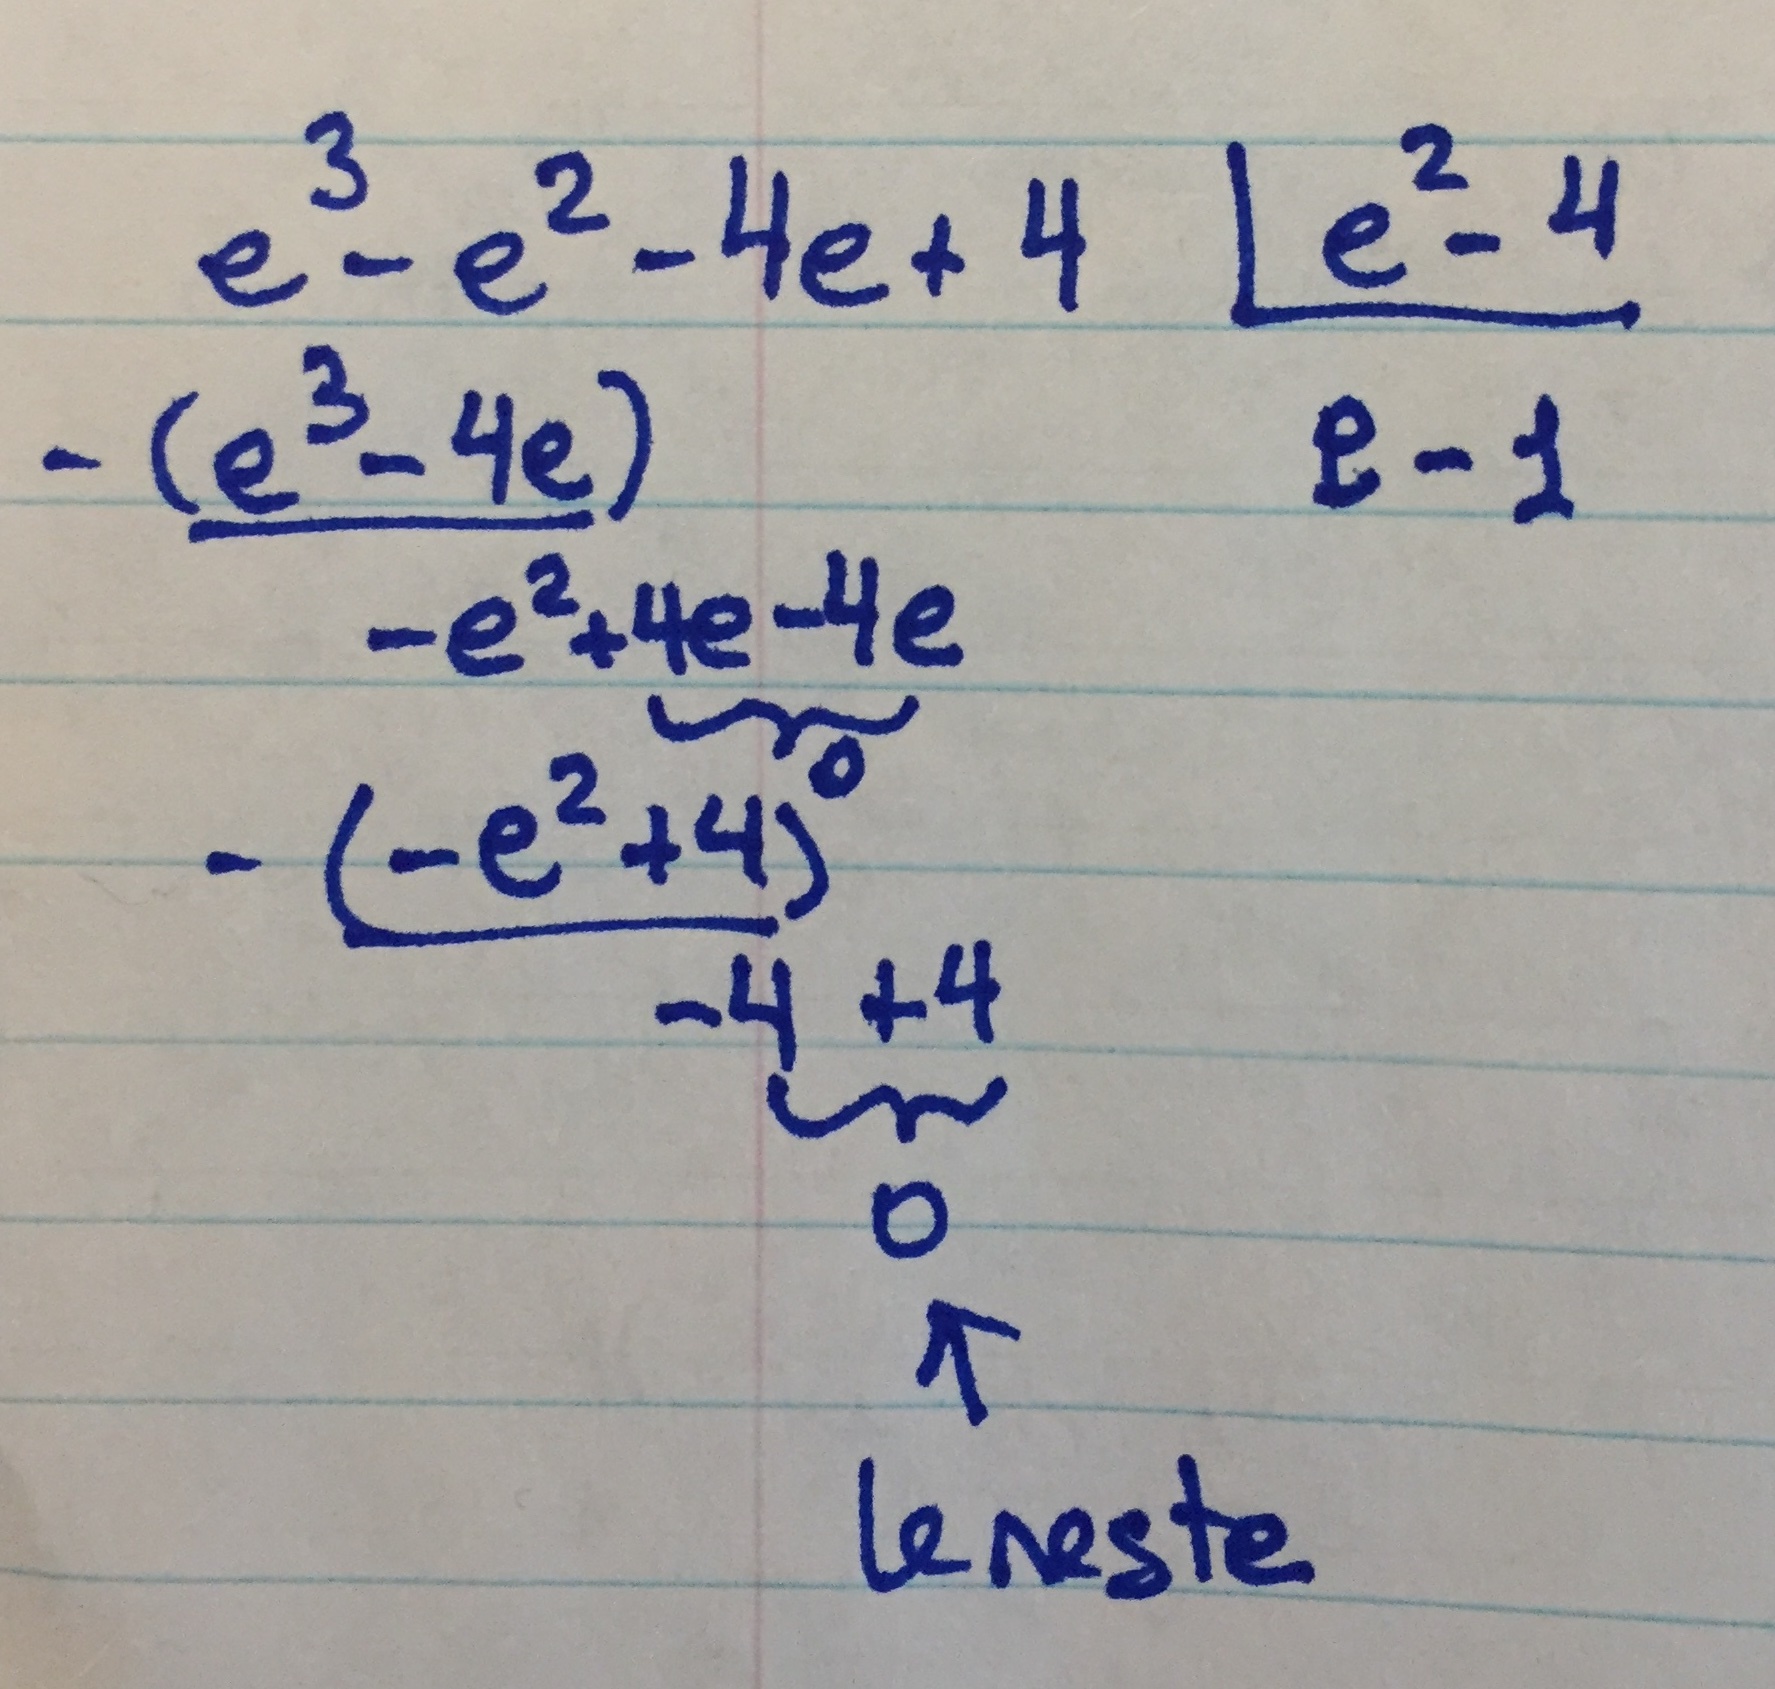 e³ - e² - 4e + 4 | e² - 4
- (e³ - 4e) e - 1
- e² + 4e - 4e
0
- (- e² + 4)
- 4 + 4
0
↑
le reste